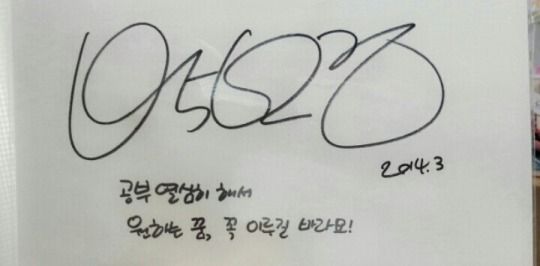 2014.3
공부 열심히 해서
원하는 꿈, 꼭 이루길 바라요!